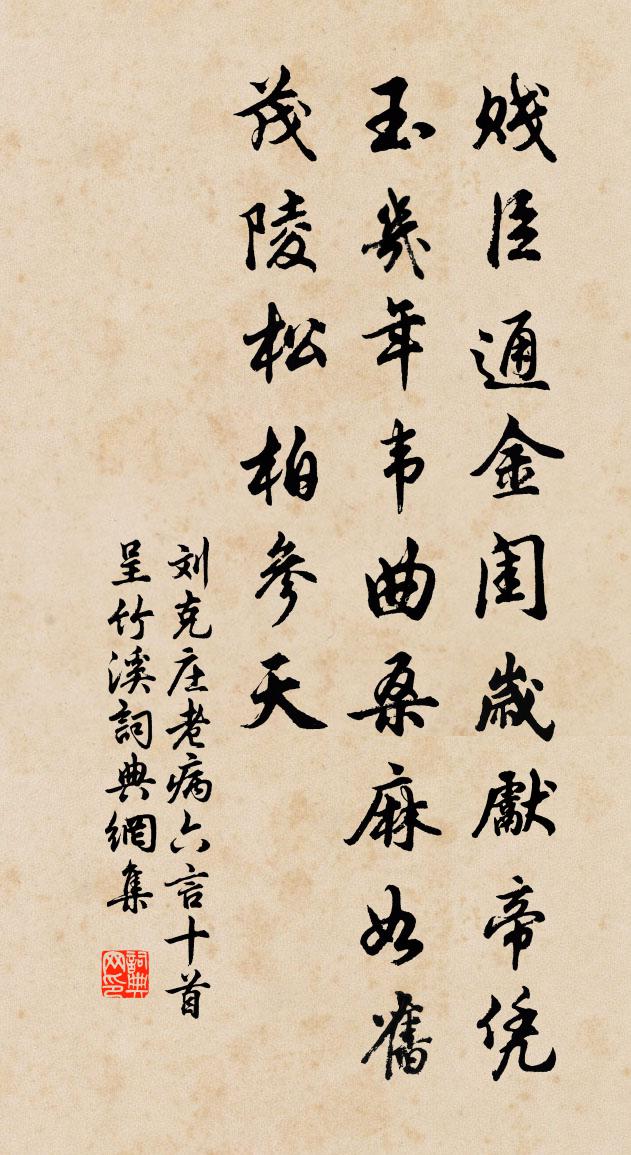 贱臣通金闺岁獻帝凭
玉几年韦曲桑麻如舊
茂陵松柏參天
刘克庄老病六言十首
呈竹溪詞典網集
詞典网印